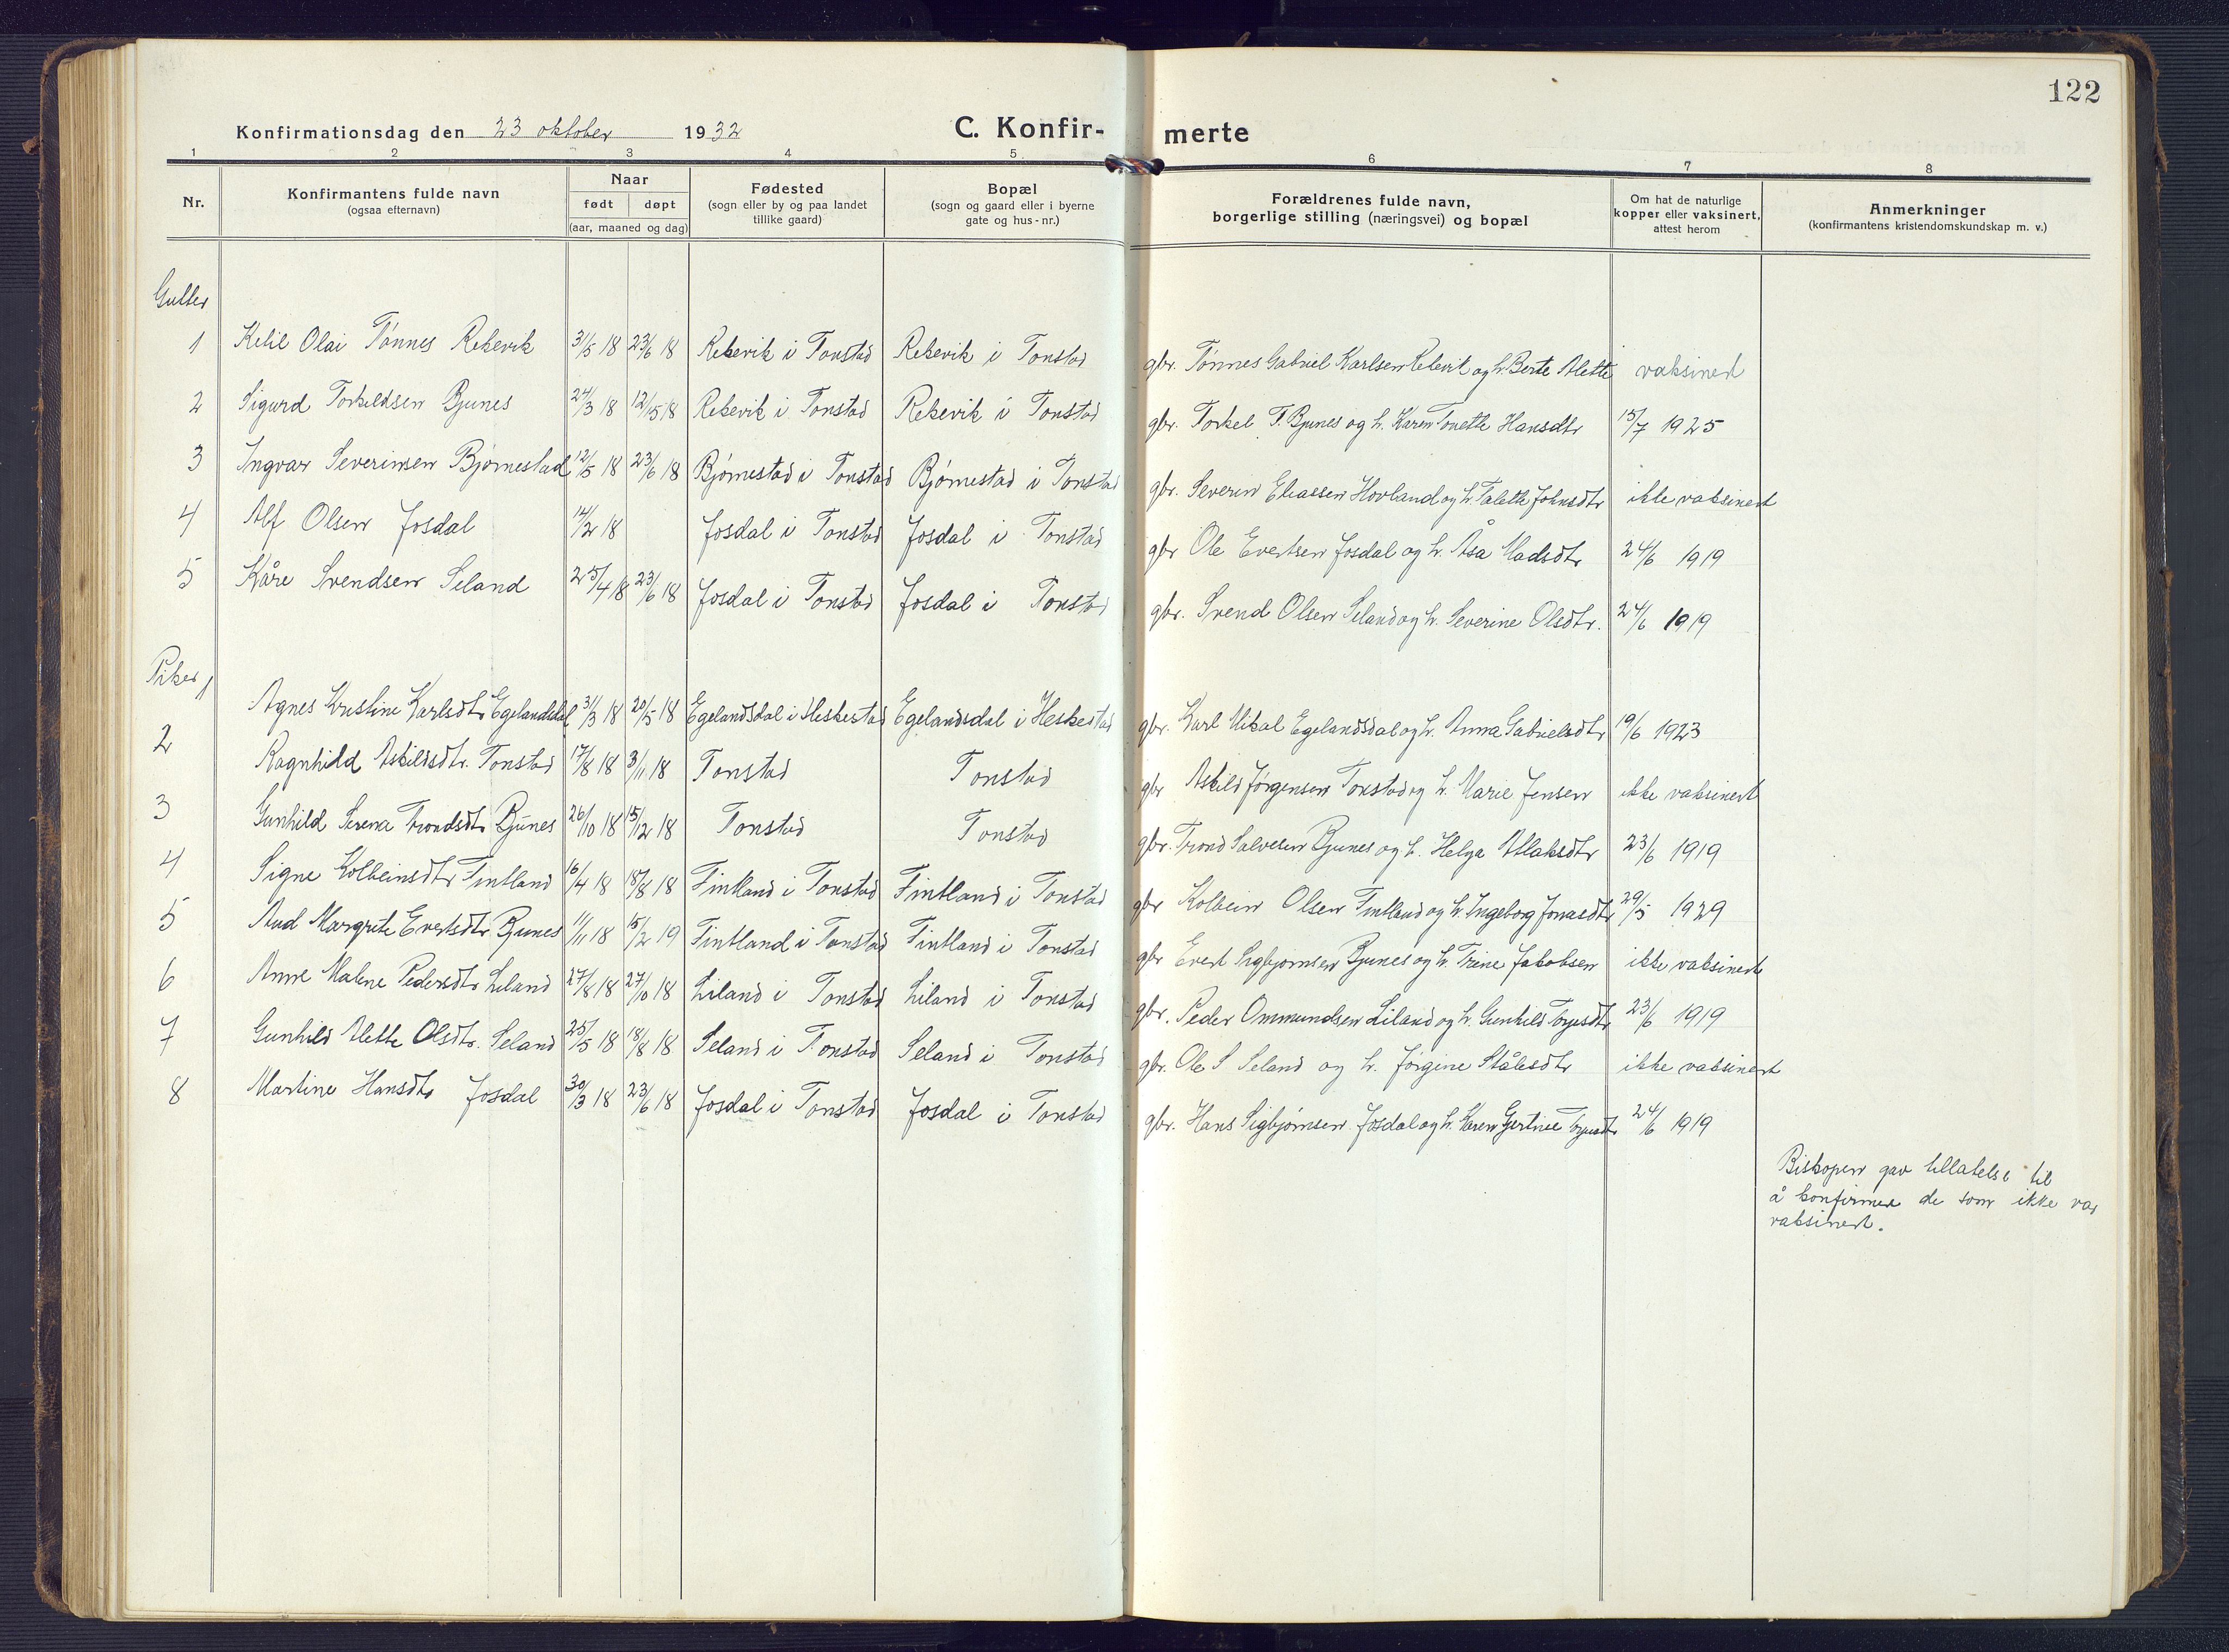 122
Konfirmationsdag den 23 oktober 1932 C. Konfir- merte
1 2 3 4 5 6 7 8
Nr. Konfirmantens fulde navn (ogsaa efternavn) Naar født døpt (aar, maaned og dag) Fødested (sogn eller by og paa landet tillike gaard) Bopæl (sogn og gaard eller i byerne gate og hus-nr.) Forældrenes fulde navn, borgerlige stilling (næringsvei) og bopæl Om hat de naturlige kopper eller vaksinert, attest herom Anmerkninger (konfirmantens kristendomskundskap m. v.)
Gutter
1 Ketil Olai Tønnes Rekevik 31/5 18 23/6 18 Rekevik i Tonstad Rekevik i Tonstad gbr. Tønnes Gabriel Karlsen Rekevik og h. Berte Alette vaksinert
2 Sigurd Torkildsen Bjunes 24/3 18 12/5 18 Rekevik i Tonstad Rekevik i Tonstad gbr. Torkel T. Bjunes og h. Karen Tonette Hansdtr 15/7 1925
3 Ingvar Severinsen Bjørnestad 12/5 18 23/6 18 Bjørnestad i Tonstad Bjørnestad i Tonstad gbr. Severin Eliassen Hovland og h. Talette Johnsdtr ikke vaksinert
4 Alf Olsen Josdal 14/2 18 Josdal i Tonstad Josdal i Tonstad gbr Ole Evertsen Josdal og h. Åsa Madsdtr 24/6 1919
5 Kåre Svendsen Seland 25/4 18 23/6 18 Josdal i Tonstad Josdal i Tonstad gbr. Svend Olsen Seland og h. Severine Olsdtr. 24/6 1919
Piker
1 Agnes Kristine Karlsdtr Egelandsdal 31/3 18 20/5 18 Egelandsdal i Heskestad Egelandsdal i Heskestad gbr. Karl Mikal Egelandsdal og h. Anna Gabrielsdtr 19/6 1923
2 Ragnhild Askildsdtr. Tonstad 17/8 18 3/11 18 Tonstad Tonstad gbr Askild Jørgensen Tonstad og h. Marie Jensen ikke vaksinert
3 Gunhild Serena Trondsdtr Bjunes 26/10 18 15/12 18 Tonstad Tonstad gbr. Trond Salvesen Bjunes og h. Helga Aslaksdtr 23/6 1919
4 Signe Kolbeinsdtr Fintland 16/4 18 18/8 18 Fintland i Tonstad Fintland i Tonstad gbr Kolbein Olsen Fintland og h. Ingeborg Jonasdtr 29/5 1929
5 Aud Margrete Evertsdtr Bjunes 1/11 18 15/2 19 Fintland i Tonstad Fintland i Tonstad gbr Evert Sigbjørnsen Bjunes og h. Trine Jakobsen ikke vaksinert
6 Anne Malene Pedersdtr Liland 27/8 18 27/10 18 Liland i Tonstad Liland i Tonstad gbr. Peder Ommundsen Liland og h. Gunhild Torjusdtr 23/6 1919
7 Gunhild Alette Olsdtr. Seland 25/5 18 18/8 18 Seland i Tonstad Seland i Tonstad gbr. Ole S Seland og h. Jørgine Stålesdtr ikke vaksinert
8 Martine Hansdtr Josdal 30/3 18 23/6 18 Josdal i Tonstad Josdal i Tonstad gbr. Hans Sigbjørnsen Josdal og h. Karen Gertine Torjusdtr 24/6 1919
Biskopen gav tillatelse til
å konfirmere de som ikke var
vaksinert.